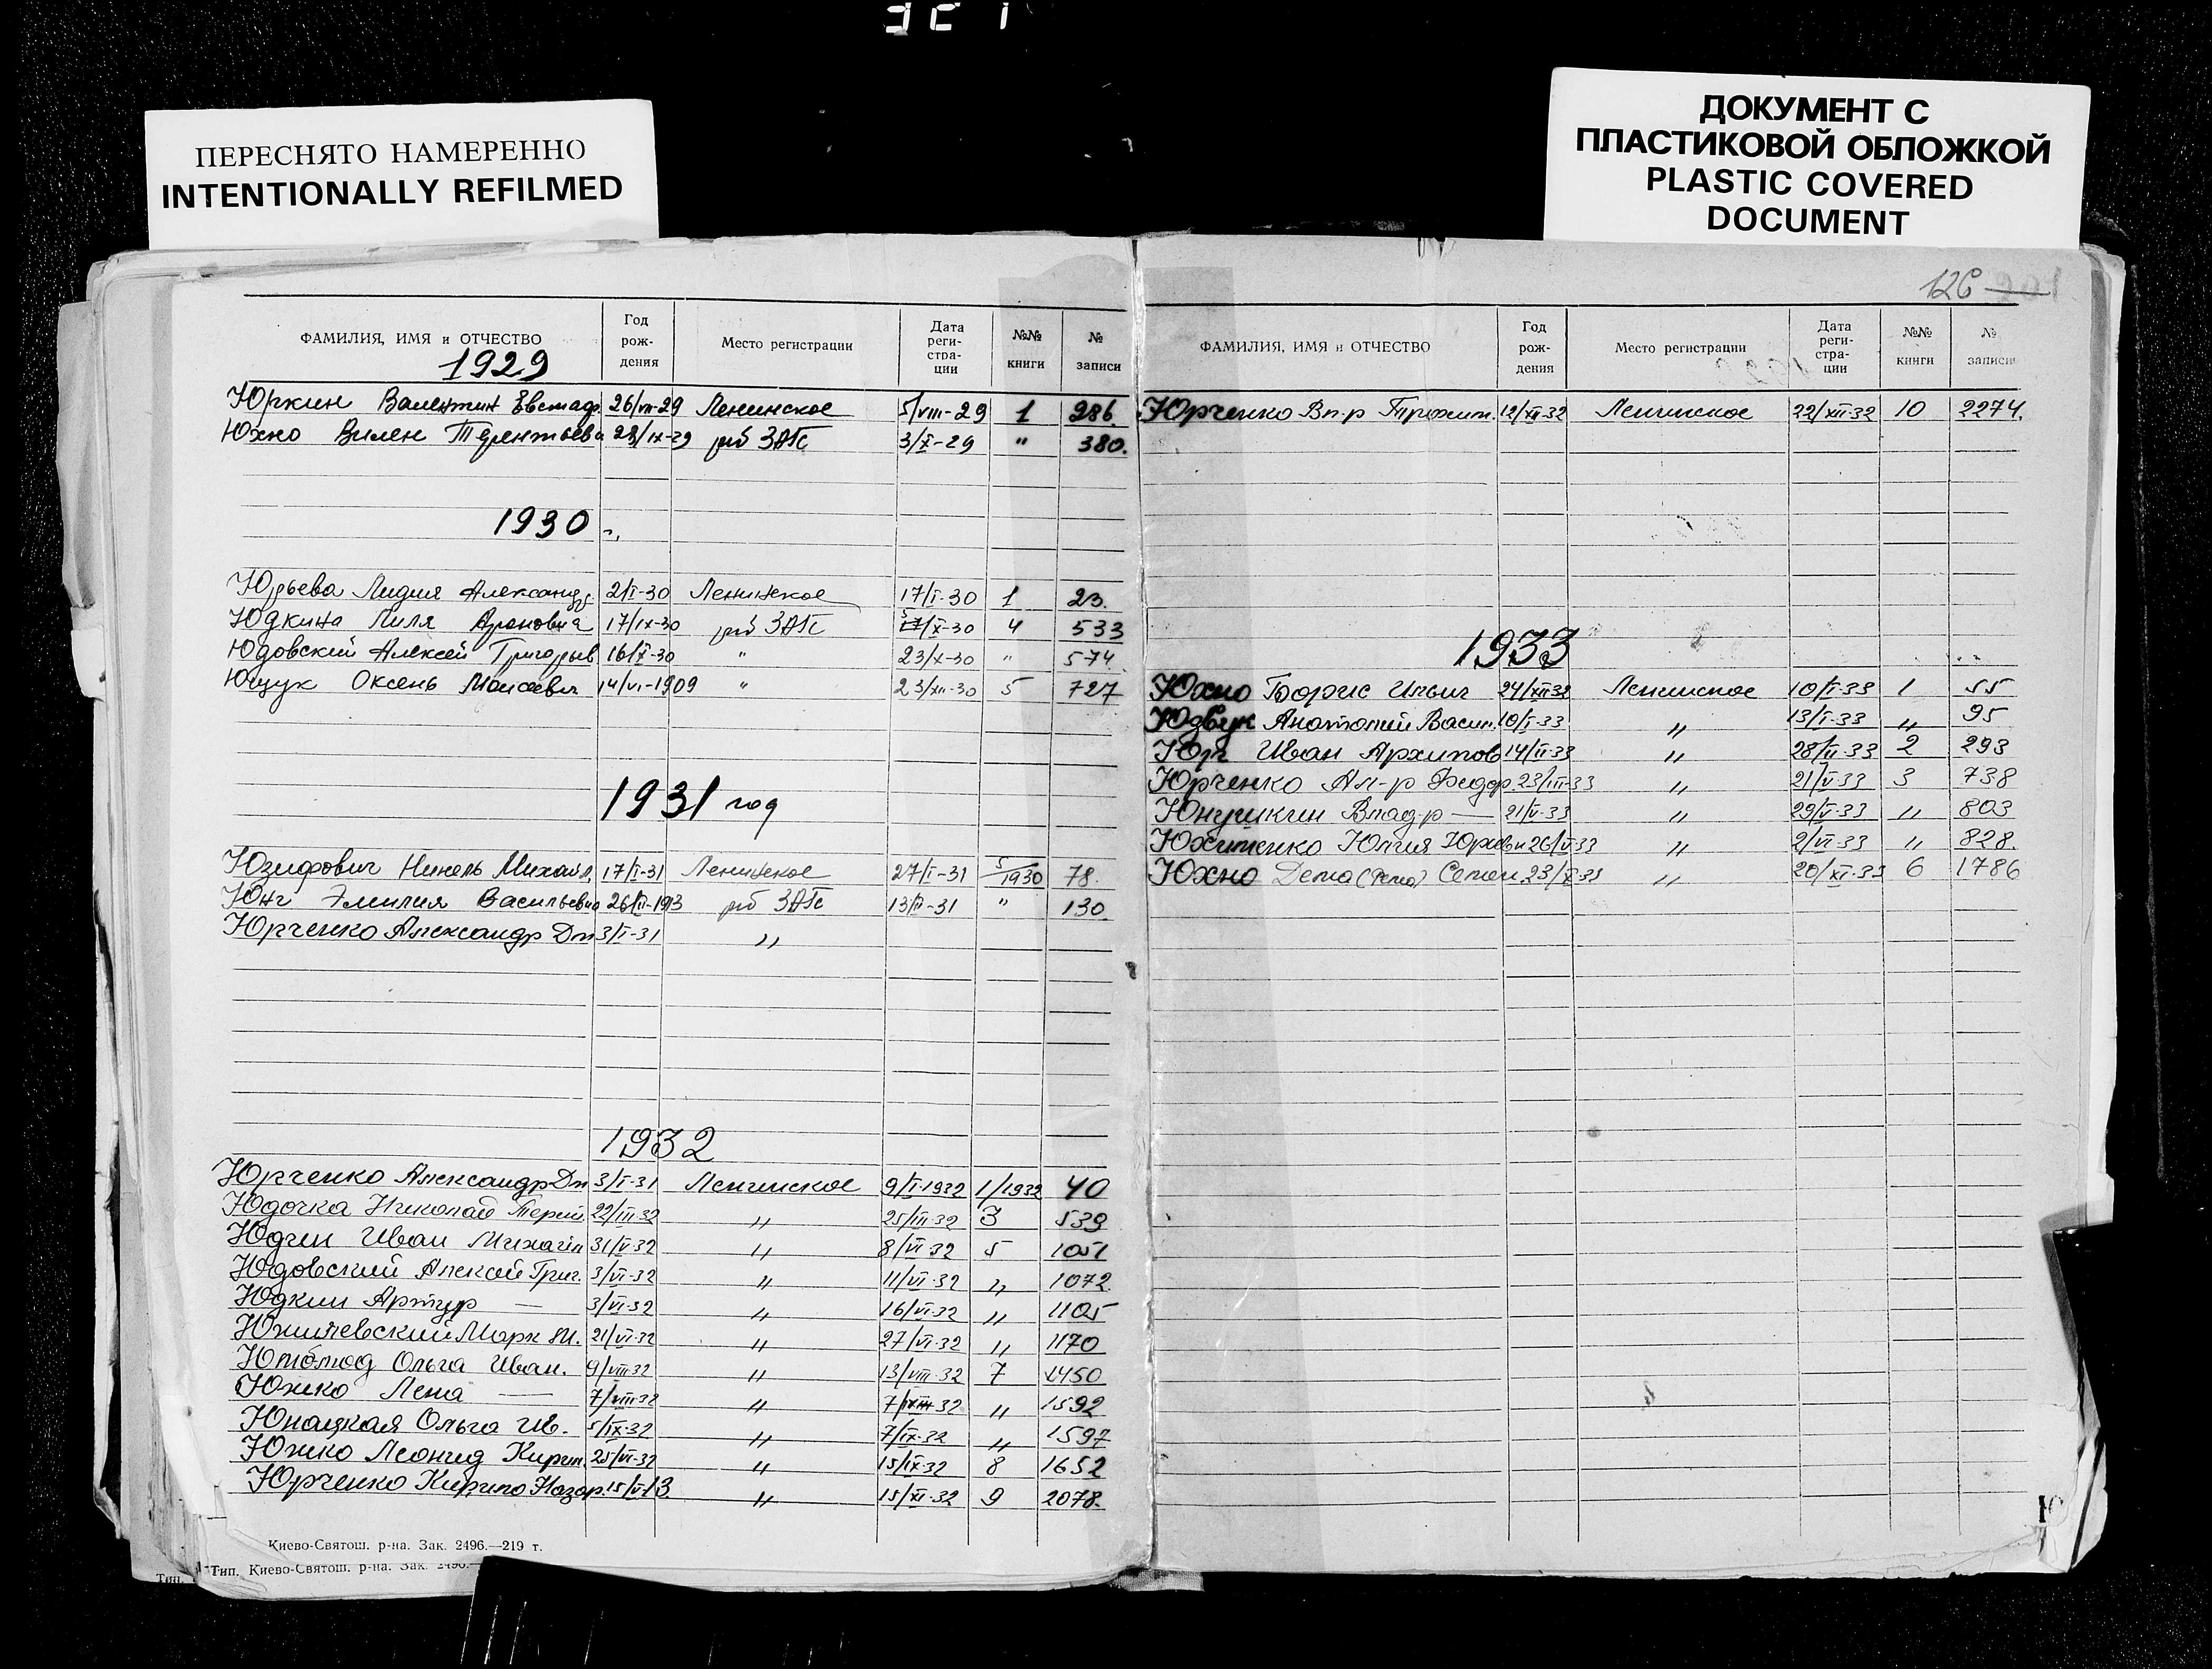 ПЕРЕСНЯТО НАМЕРЕННО
INTENTIONALLY REFILMED
ДОКУМЕНТ С
ПЛАСТИКОВОЙ ОБЛОЖКОЙ
PLASTIC COVERED
DOCUMENT
ФАМИЛИЯ, ИМЯ и ОТЧЕСТВО Год рождения Место регистрации Дата регистрации №№ книги № записи
1929
Юркин Валентин Евстаф. 26/VII-29 Ленинское 5/VIII-29 1 286.
Юхно Вилен Терентьева 28/IX-29 рб ЗАГС 3/X-29 " 380.
1930
Юрьева Лидия Александр. 2/I-30 Ленинское 17/I-30 1 23.
Юдкина Лиля Ароновна 17/IX-30 рб ЗАГС /X-30 4 533
Юдовский Алексей Григорьев 16/X-30 " 23/X-30 " 574
Ющук Оксень Моисеевич 14/VI-1909 " 23/XII-30 5 727
1931 год
Юзифович Нинель Михайл. 17/I-31 Ленинское 27/I-31 5/1930 78.
Юнг Эмилия Васильевна 26/II-1913 рб ЗАГС 13/II-31 " 130
Юрченко Александр Дм 3/I-31 "
1932
Юрченко Александр Дм 3/I-31 Ленинское 9/I-1932 1/1932 40
Юдочка Николай 22/III-32 " 25/III-32 3 539
Юдин Иван Михайл 31/V-32 " 8/VI-32 5 1051
Юдовский Алексей Григ. 3/VI-32 " 11/VI-32 " 1072
Юдкин Артур — 3/VI-32 " 16/VI-32 " 1105
Марк М. 21/VI-32 " 27/VI-32 " 1170
Ольга Иван. 9/VIII-32 " 13/VIII-32 7 1450
Южко Лена — 7/VIII-32 " 7/ 32 " 1592
Юнацкая Ольга Ив. 5/IX-32 " 7/IX-32 " 1597
Южко Леонид Кирил. 25/VI-32 " 15/IX-32 8 1652
Юрченко Кирило Назар. 15/V-13 " 15/XI-32 9 2078.
Киево-Святош. р-на. Зак. 2496.—219 т.
Тип. Киево-Святош. р-на. Зак. 2496.—
126
ФАМИЛИЯ, ИМЯ и ОТЧЕСТВО Год рождения Место регистрации Дата регистрации №№ книги № записи
Юрченко Вл-р 12/XII-32 Ленинское 22/XII-32 10 2274.
1933
Юхно Борис Ильич 24/XII-32 Ленинское 10/I-33 1 55
Анатолий Васил. 10/I-33 " 13/I-33 " 95
Юрч Иван Архипов 14/II-33 " 28/II-33 2 293
Юрченко Ал-р Федор. 23/III-33 " 21/V-33 3 738
Юнушкин Влад-р — 21/V-33 " 29/V-33 " 803
Юхименко Юлия Юрьевн 26/V-33 " 2/VI-33 " 828.
Юхно Дема (Рема) Семен. 23/X-33 " 20/XI-33 6 1786
Ю